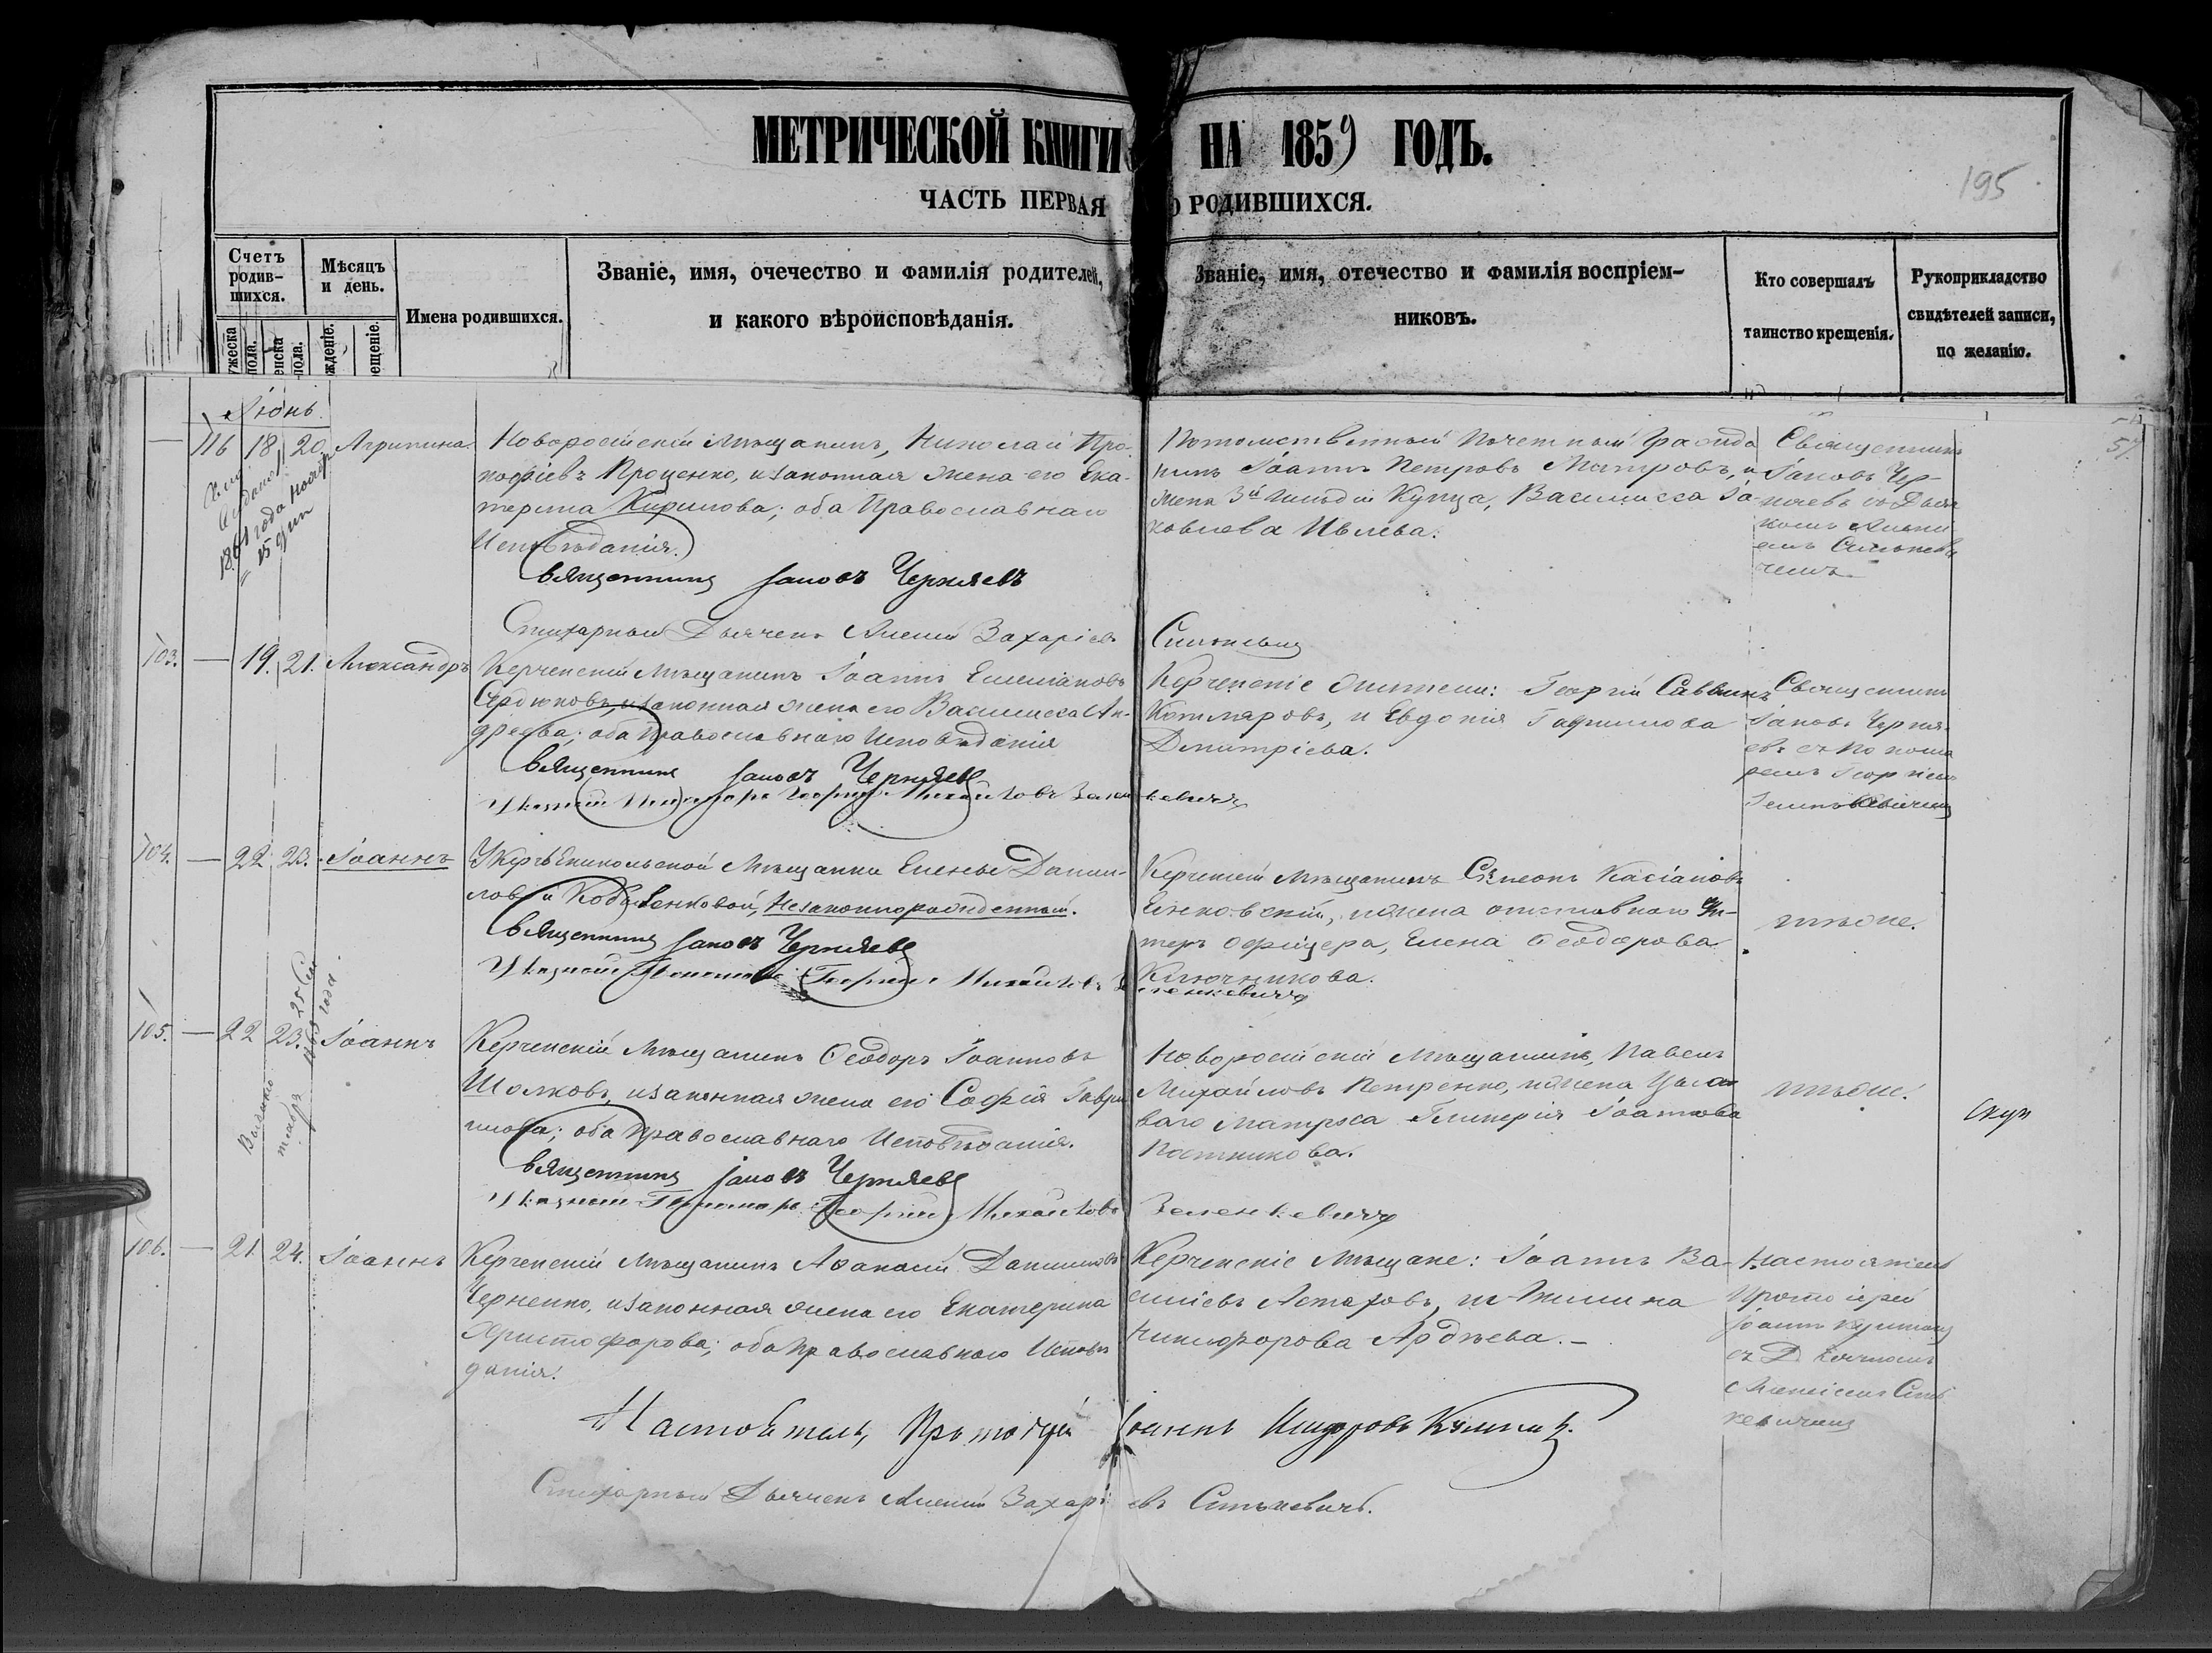 МЕТРИЧЕСКОЙ КНИГИ НА 1859 ГОДЪ.
195
ЧАСТЬ ПЕРВАЯ О РОДИВШИХСЯ.
Счетъ родив-шихся.
Мѣсяцъ и день.
Имена родившихся.
Званіе, имя, очечество и фамилія родителей,
и какого вѣроисповѣданія.
Званіе, имя, отечество и фамилія воспріем-
никовъ.
Кто совершалъ
таинство крещенія.
Рукоприкладство
свидѣтелей записи,
по желанію.
Іюнь
57.
116 18 20. Агрипина.
Новоросійскій Мѣщанинъ, Николай Про-
кофіевъ Проценко, изаконная жена его Ека-
терина Кирилова; оба Православнаго
Исповѣданія.
Священникъ Іаковъ Черняевъ
Стихарный Дьячекъ Алексій Захаріевъ Синькевичъ
Потомственный Почетный Гражда
нинъ Іоаннъ Петровъ Митровъ, и
жена 3й Гильдіи Купца, Василисса Іа-
ковлева Ивлева.
Священникъ
Іаковъ Чер-
няевъ съ Дьяч
комъ Алексі
емъ Синькеви
чемъ.
1861 года ноября
15 дня
103. — 19. 21. Александръ
Керченскій Мѣщанинъ Іоаннъ Емеліановъ
Сердюковъ, изаконная жена его Василисса Ан-
дреева; оба Православнаго Исповѣданія
Священникъ Іаковъ Черняевъ
Указный Пономарь Георгій Михайловъ Зеленкевичъ
Керченскіе Жители: Георгій Саввинъ
Котляровъ, и Евдокія Гаврилова
Димитріева.
Священникъ
Іаковъ Черня-
евъ съ Понома
ремъ Георгіемъ
Зеленкевичемъ
104. — 22. 23. Іоаннъ
УКерчьЕникольской Мѣщанки Елены Дании-
ловой Коваленковой, Незаконнорожденный.
Священникъ Іаковъ Черняевъ
Указный Пономарь Георгій Михайловъ Зеленкевичъ
Керченскій Мѣщанинъ Сѵмеонъ Касіановъ
Янковскій, ижена отставнаго Ун-
теръ Офицера, Елена Ѳеодорова
Ключникова.
тѣже.
105. — 22 23. Іоаннъ
Выдано 25 Сен
тября года
Керченскій Мѣщанинъ Ѳеодоръ Іоанновъ
Шолковъ, изаконная жена его Софія Гаври
илова; оба Православнаго Исповѣданія.
Священникъ Іаковъ Черняевъ
Указный Пономарь Георгій Михайловъ Зеленкевичъ
Новоросійскій Мѣщанинъ, Павелъ
Михайловъ Петренко, ижена
ваго Матроса Гликерія Іоаннова
Постникова.
тѣже.
106. — 21. 24. Іоаннъ
Керченскій Мѣщанинъ Аѳанасій Данииловъ
Черненко, изаконная жена его Екатерина
Христофорова; оба Православнаго Исповѣ
данія.
Керченскіе Мѣщане: Іоаннъ Ва-
силіевъ Астаховъ,
Никифорова Ардѣева. —
Настоятель
Протоіерей
Іоаннъ Кушниръ
съ Дьячкомъ
Алексіемъ Синь
кевичемъ
Настоятель, Протоіерей Іоаннъ
Стихарный Дьячекъ Алексій Захаріевъ Синькевичъ.